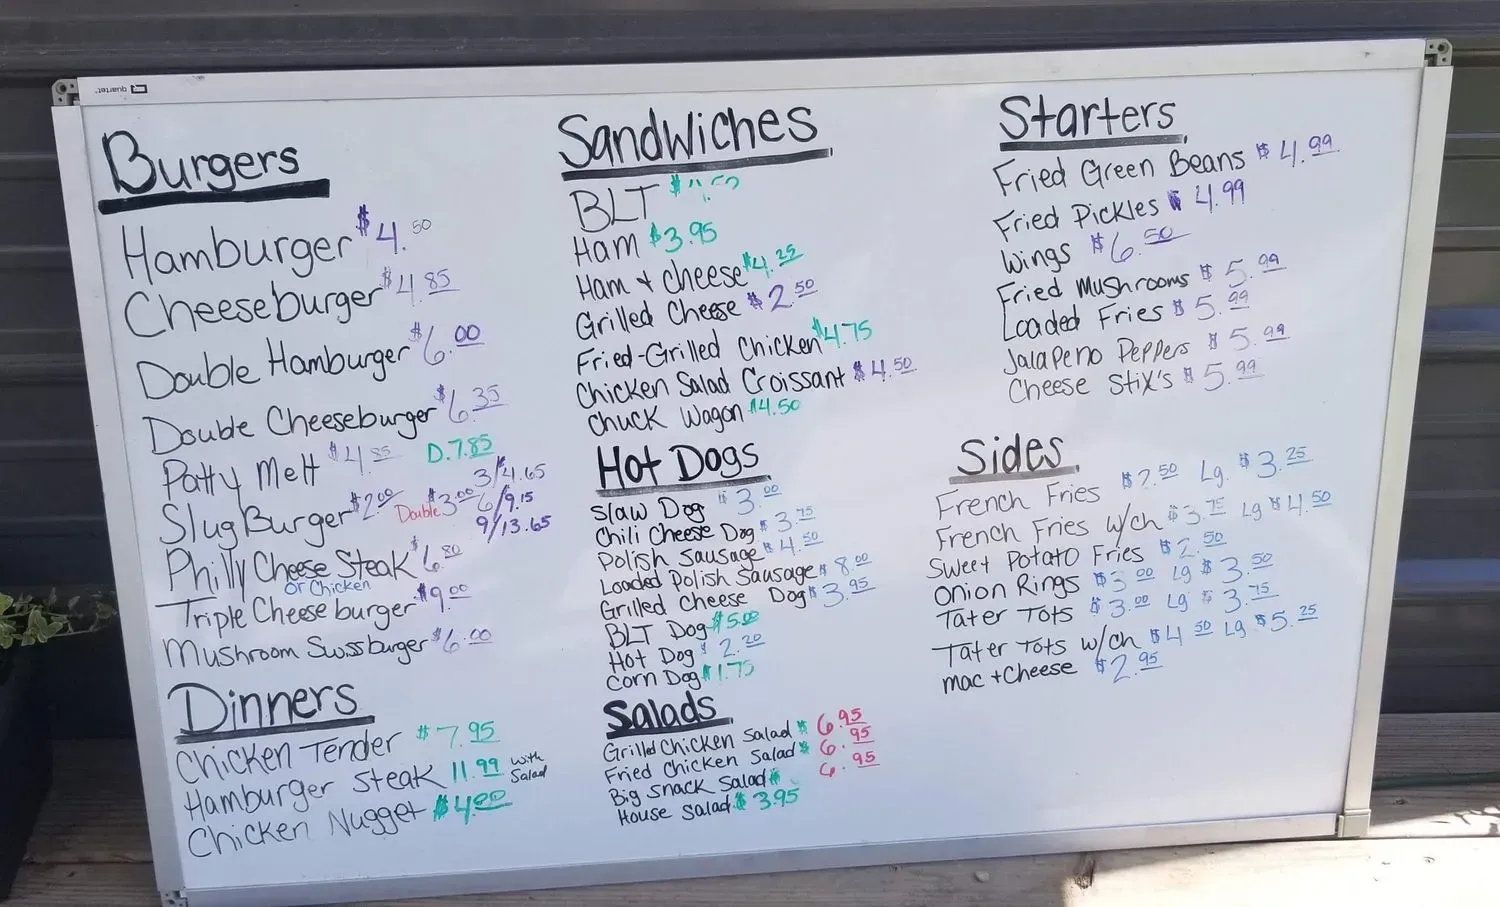 quartet
Burgers
Hamburger $4.50
Cheeseburger $4.85
Double Hamburger $6.00
Double Cheeseburger $6.35
Patty Melt $4.85 D.7.85
Slug Burger $2.00 Double $3.00 3/$4.65
6/9.15
9/13.65
Philly Cheese Steak $6.80
or Chicken
Triple Cheeseburger $9.00
Mushroom Swissburger $6.00
Dinners
Chicken Tender $7.95
Hamburger Steak 11.99 with Salad
Chicken Nugget $4.00
Sandwiches
BLT
Ham $3.95
Ham + cheese $4.25
Grilled Cheese $2.50
Fried-Grilled Chicken $4.75
Chicken Salad Croissant $4.50
Chuck Wagon $4.50
Hot Dogs
Slaw Dog $3.00
Chili Cheese Dog $3.75
Polish Sausage $4.50
Loaded Polish Sausage $8.00
Grilled Cheese Dog $3.95
BLT Dog $5.00
Hot Dog $2.20
Corn Dog $1.75
Salads
Grilled Chicken Salad $6.95
Fried Chicken Salad $6.95
Big Snack Salad $6.95
House Salad $3.95
Starters
Fried Green Beans $4.99
Fried Pickles $4.99
Wings $6.50
Fried Mushrooms $5.99
Loaded Fries $5.99
Jalapeno Peppers $5.99
Cheese Stix's $5.99
Sides
French Fries $2.50 Lg. $3.25
French Fries w/ch $3.75 Lg $4.50
Sweet Potato Fries $2.50
Onion Rings $3.00 Lg $3.50
Tater Tots $3.00 Lg $3.75
Tater Tots w/ch $4.50 Lg $5.25
Mac + Cheese $2.95